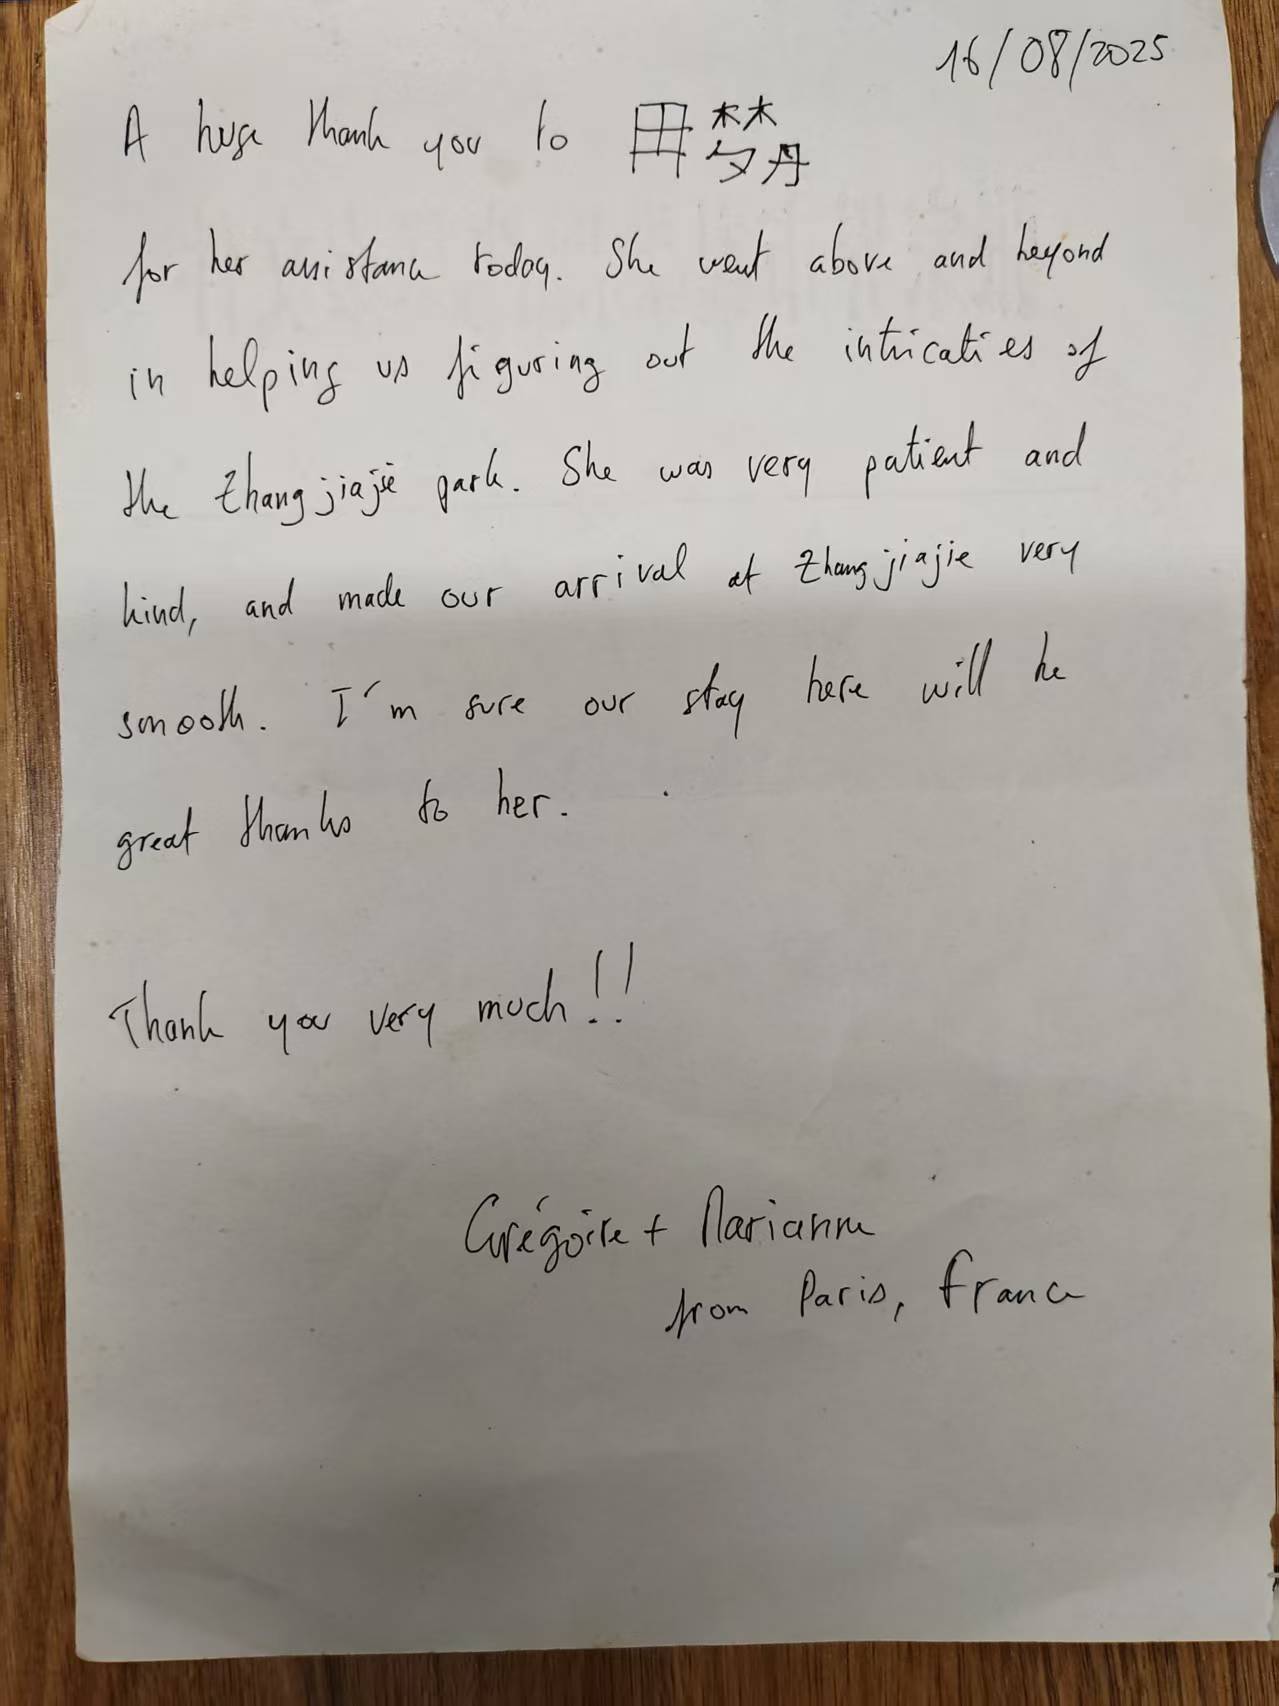 16/08/2025
A huge thank you to 田梦丹
for her assistance today. She went above and beyond
in helping us figuring out the intricaties of
the Zhangjiajie park. She was very patient and
kind, and made our arrival at Zhangjiajie very
smooth. I'm sure our stay here will be
great thanks to her.
Thank you very much!!
Grégoire + Marianne
from Paris, France